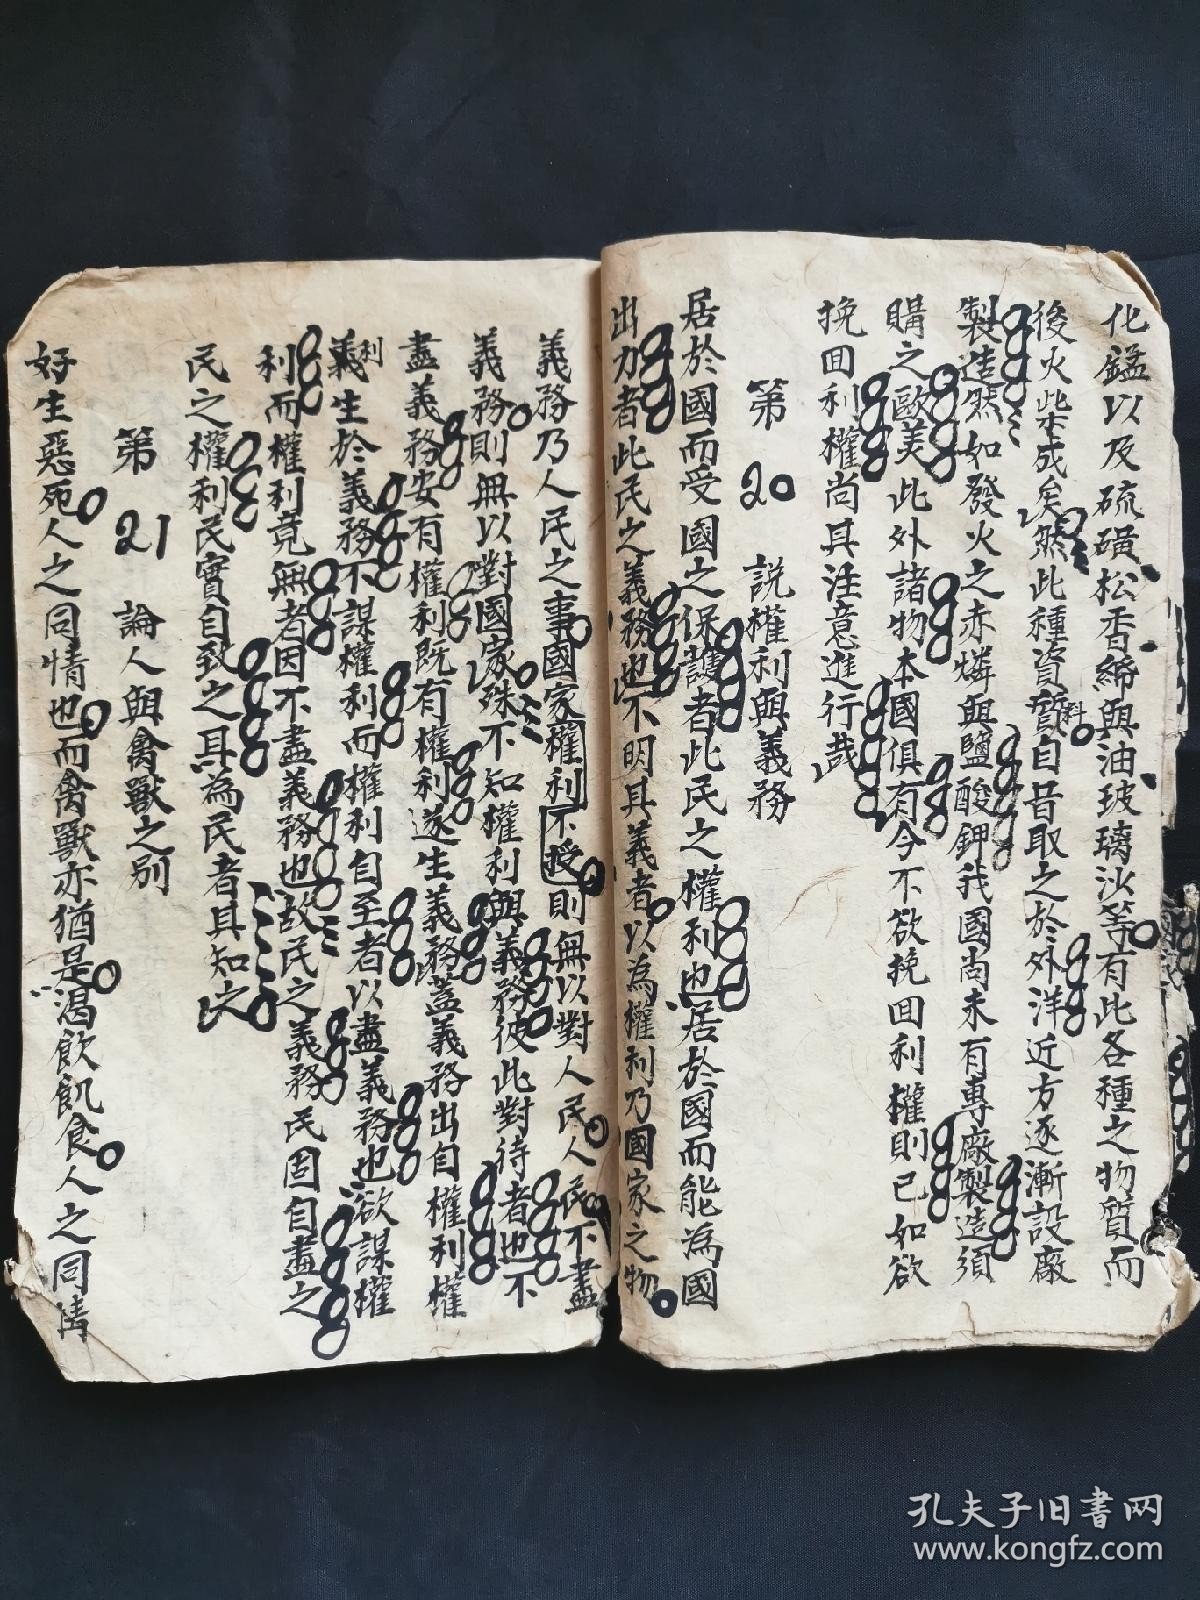 化錳以及硫磺松香綈與油玻璃沙等有此各種之物質而
後火柴成矣然此種資質料自昔取之於外洋近方逐漸設廠
製造然如發火之赤燐與鹽酸鉀我國尚未有專廠製造須
購之歐美此外諸物本國俱有今不欲挽回利權則已如欲
挽回利權尚其注意進行哉
第20 說權利與義務
居於國而受國之保護者此民之權利也居於國而能為國
出力者此民之義務也不明其義者以為權利乃國家之物
義務乃人民之事國家權利不授則無以對人民人民不盡
義務則無以對國家殊不知權利與義務彼此對待者也不
盡義務安有權利既有權利遂生義務蓋義務出自權利權
利義生於義務不謀權利而權利自至者以盡義務也欲謀權
利而權利竟無者因不盡義務也故民之義務民固自盡之
民之權利民實自致之其為民者其知之
第21 論人與禽獸之別
好生惡死人之同情也而禽獸亦猶是渴飲飢食人之同情
孔夫子旧书网
www.kongfz.com